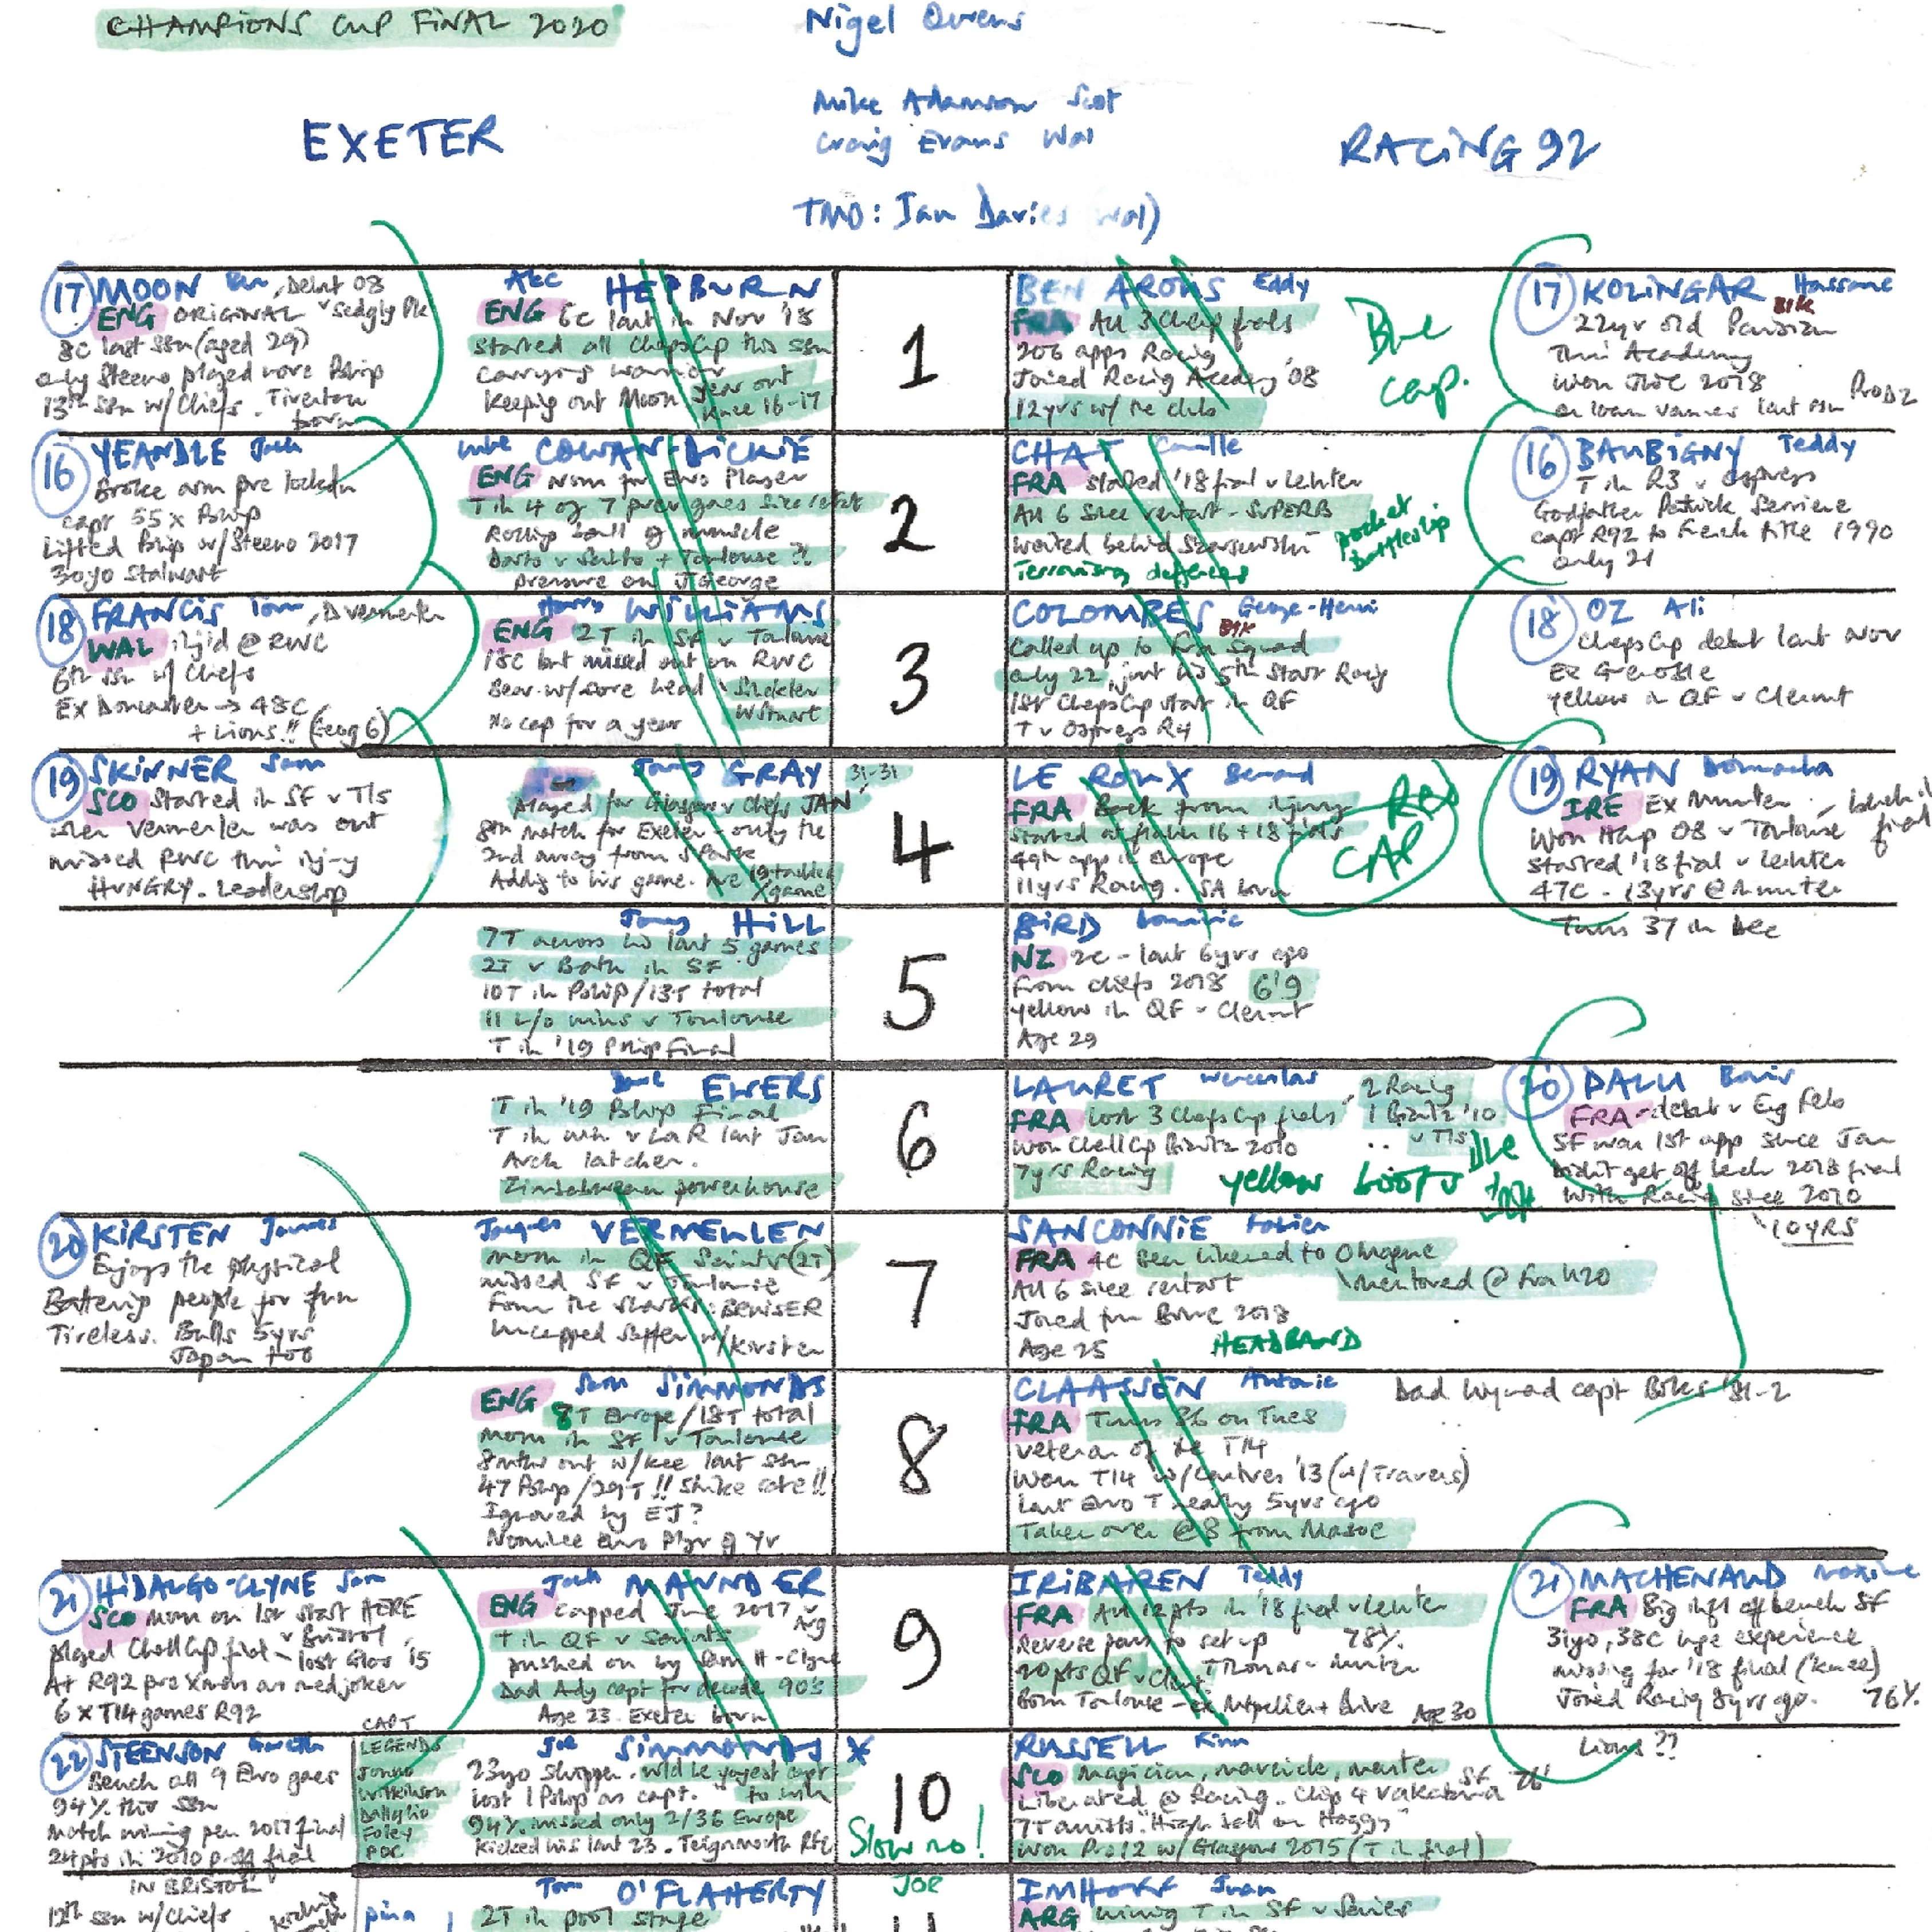 CHAMPIONS CUP FINAL 2020
Nigel Owens
Mike Adamson Scot
Craig Evans Wal
TMO: Ian Davies Wal)
EXETER
RACING 92
17 MOON Ben, Debut 08
ENG ORIGINAL
8C last ssn (aged 29)
only Steeno played more Pship
13th ssn w/ Chiefs. Tiverton
born
Alec HEPBURN
ENG 6C last in Nov '18
started all ChpsCup this ssn
Carrying warrior
Keeping out Moon
year out
knee 16-17
1
BEN AROUS Eddy
FRA All 3 Chcup finals
206 apps Racing
Joined Racing Academy '08
12yrs w/ the club
Blue
cap.
17 KOLINGAR Hassane
22yr old Parisian
Thru Academy
Won JWC 2018
on loan Vannes last ssn ProD2
16 YEANDLE Jack
Broke arm pre lockdn
capt 55 x Pship
Lifted Pship w/ Steeno 2017
30yo Stalwart
Luke COWAN-DICKIE
ENG Nom for Euro Player
T in 4 of 7 prev games since restart
Rolling ball of muscle
Darts v Saints + Toulouse ?!
pressure on J George
2
CHAT Camille
FRA started '18 final v Leinster
All 6 since restart - SUPERB
waited behind Szarzewski
Terrorising defences
pocket
battleship
16 BAUBIGNY Teddy
T in R3 v Ospreys
Godfather Patrick Serriere
capt R92 to French title 1990
only 21
18 FRANCIS Tom,
WAL inj'd @ RWC
6th ssn w/ Chiefs
Ex Doncaster → 48C
+ Lions!! (Geog 6)
Harry WILLIAMS
ENG 2T in SF v Toulouse
18C but missed out on RWC
Bear w/ sore head
No cap for a year
3
COLOMBES George-Henri
Called up to Fra Squad
only 22, just his 5th start Racing
1st ChpsCup start in QF
T v Ospreys R4
18 OZ Ali
ChpsCup debut last Nov
Ex Grenoble
yellow in QF v Clermt
19 SKINNER Sam
SCO Started in SF v Tls
when Vermeulen was out
missed RWC thru inj-y
HUNGRY. Leadership
Jonny GRAY
31-31
played for Glasgow v Chiefs JAN
8th match for Exeter - only the
2nd away from S Park
Adding to his game. Ave 19 tackles
/game
4
LE ROUX Bernard
FRA Back from injury
started at flanker 16 + 18 finals
49th app in Europe
11yrs Racing. SA born
RED
CAP
19 RYAN Donnacha
IRE Ex Munster
Won Hcup 08 v Toulouse
started '18 final v Leinster
47C - 13yrs @ Munster
Turns 37 in Dec
Jonny HILL
7T across his last 5 games
2T v Bath in SF
10T in Pship/13T total
11 L/O wins v Toulouse
T in '19 Pship Final
5
BIRD Dominic
NZ 2C - last 6yrs ago
from Chiefs 2018 6'9
yellow in QF v Clermt
Age 29
Dave EWERS
T in '19 Pship Final
T in win v LaR last Jan
Arch latcher.
Zimbabwean powerhouse
6
LAURET Wenceslas, 2 Racing
FRA Lost 3 ChpsCup finals 1 Biarritz '10
v Tls
won ChallCp Biarritz 2012
7yrs Racing
yellow boots
20 PALU Boris
FRA - debut v Eng Feb
SF was 1st app since Jan
Didn't get off bench 2018 final
With Racing since 2010
10YRS
20 KIRSTEN Jannes
Enjoys the physical
Battering people for fun
Tireless. Bulls 5yrs
Japan too
Jacques VERMEULEN
mom in QF Saints (2T)
missed SF v Toulouse
from the Sharks: BRUISER
Uncapped Saffer w/ Kirsten
7
SANCONNIE Fabien
FRA 4C Been likened to
All 6 since restart
mentored @ Fra U20
Joined frm Brive 2018
Age 25
HEADBAND
Sam SIMMONDS
ENG 8T Europe/18T total
mom in SF v Toulouse
8mths out w/ knee last ssn
47 Pship/29T !! Strike rate!!
Ignored by EJ?
Nominee Euro Plyr of Yr
8
CLAASSEN Antonie
Dad Wynand capt Boks '81-2
FRA Turns 36 on Tues
Veteran of the T14
Won T14 w/ Castres '13 (w/ Travers)
Last Euro T nearly 5yrs ago
Taken over @ 8 from Masoe
21 HIDALGO-CLYNE Sam
SCO mom on 1st start HERE
v Bristol
played ChallCup final - lost Glos '15
At R92 pre Xmas as med joker
6 x T14 games R92
Jack MAUNDER
ENG capped June 2017 v
Arg
T in QF v Saints
pushed on by Sam H-Clyne
Dad Andy capt for decade 90's
Age 23. Exeter born
9
IRIBAREN Teddy
FRA All 12pts in '18 final v Leinster
Reverse pass to set up 78%
20pts QF v Clermt Thomas v Munster
Born Toulouse - ex Mtpellier + Brive Age 30
21 MACHENAUD Maxime
FRA Big infl off bench SF
31yo, 38C huge experience
missing for '18 final (knee)
Joined Racing 8yrs ago. 76%
Lions ??
22 STEENSON Gareth
Bench all 9 Euro games
94% this ssn
Match winning pen 2017 final
24pts in 2010 p-off final
IN BRISTOL
12th ssn w/ Chiefs
CAPT
LEGENDS
Jonno
Wilkinson
Dallaglio
Foley
POC
Joe SIMMONDS
23yo skipper. wld be yngest capt
to win
lost 1 Pship as capt.
94%. missed only 2/36 Europe
Kicked his last 23. Teignmouth RFC
10
Slow no!
RUSSELL Finn
SCO Magician, maverick, master
Liberated @ Racing. Chip 4 Vakatawa SF 76'
7T assists. "High ball on Hoggy"
Won Pro12 w/ Glasgow 2015 (T in final)
Tom O'FLAHERTY
2T in pool stage
JOE
IMHOFF Juan
ARG winning T in SF v Saries